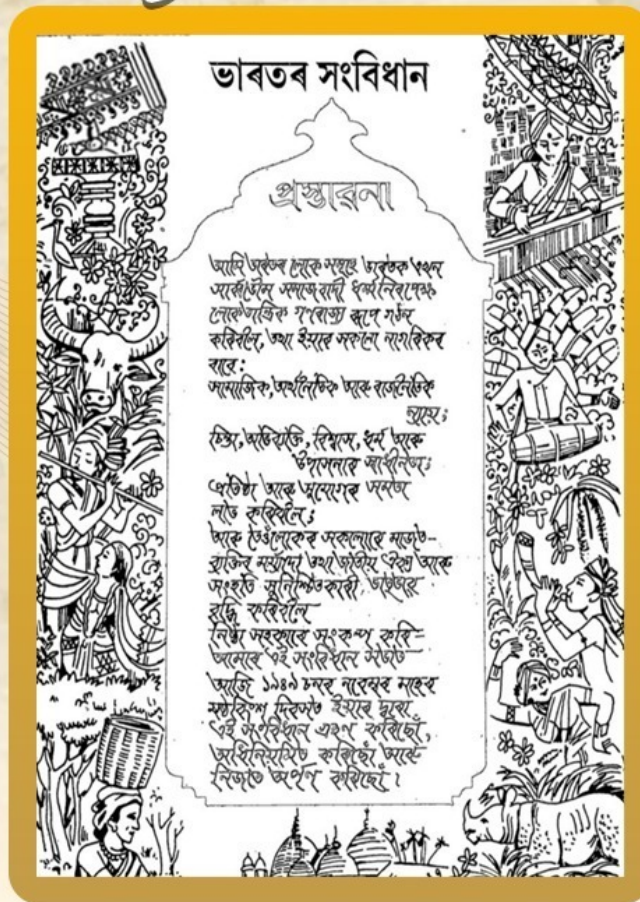 ভাৰতৰ সংবিধান
প্ৰস্তাৱনা
আমি ভাৰতৰ লোক সমূহে ভাৰতক এখন
সাৰ্বভৌম সমাজবাদী ধৰ্মনিৰপেক্ষ
লোকতান্ত্ৰিক গণৰাজ্য ৰূপে গঠন
কৰিবলৈ, তথা ইয়াৰ সকলো নাগৰিকৰ
বাবে:
সামাজিক, অৰ্থনৈতিক আৰু ৰাজনৈতিক
ন্যায়;
চিন্তা, অভিব্যক্তি, বিশ্বাস, ধৰ্ম আৰু
উপাসনাৰ স্বাধীনতা;
প্ৰতিষ্ঠা আৰু সুযোগৰ সমতা
লাভ কৰিবলৈ;
আৰু তেওঁলোকৰ সকলোৰে মাজত-
ব্যক্তিৰ মৰ্য্যাদা তথা জাতীয় ঐক্য আৰু
সংহতি সুনিশ্চিতকাৰী ভাতৃভাৱ
বৃদ্ধি কৰিবলৈ
নিষ্ঠা সহকাৰে সংকল্প কৰি-
আমাৰ এই সংবিধান সভাত
আজি ১৯৪৯ চনৰ নৱেম্বৰ মাহৰ
দিৱসত ইয়াৰ দ্বাৰা
এই সংবিধান গ্ৰহণ কৰিছোঁ,
অধিনিয়মিত কৰিছোঁ আৰু
নিজকে অৰ্পণ কৰিছোঁ।